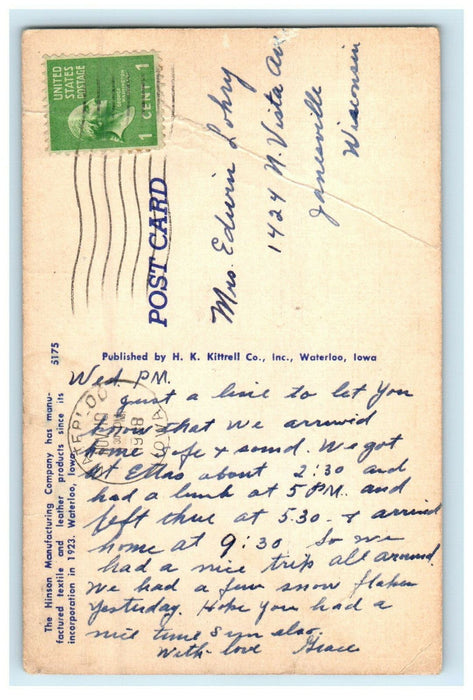 UNITED
STATES
POSTAGE
1 CENT 1
POST CARD
Mrs. Edwin Lohry
1424 N. Vista Ave
Janesville
Wisconsin
5175
Published by H. K. Kittrell Co., Inc., Waterloo, Iowa
The Hinson Manufacturing Company has manu-
factured textile and leather products since its
incorporation in 1923. Waterloo, Iowa
WATERLOO
IOWA
Wed PM.
Just a line to let you
know that we arrived
home safe + sound. We got
at Ettas about 2:30 and
had a lunch at 5 PM. and
left thue at 5.30 - & arrived
home at 9:30. So we
had a nice trip all around.
We had a few snow flakes
yesterday. Hope you had a
nice time Sun also.
With love Grace